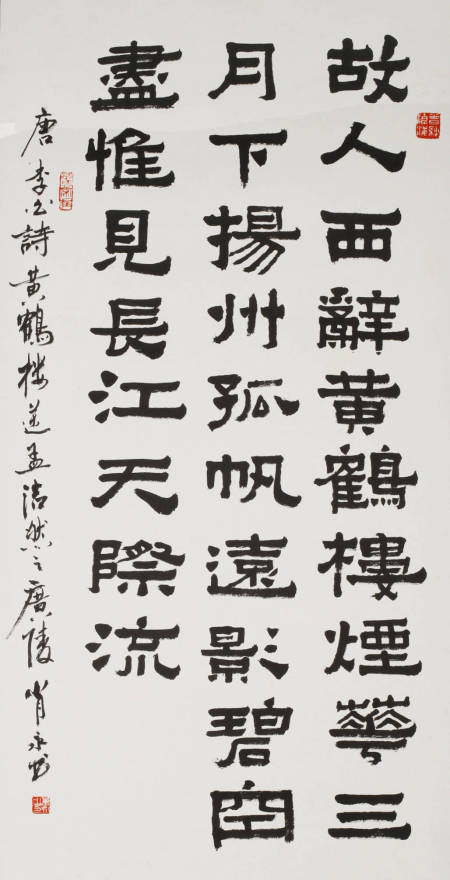 故人西辭黄鶴樓煙華三
月下揚州孤帆遠影碧空
盡惟見長江天際流
唐李白詩黄鶴楼送孟浩然之廣陵